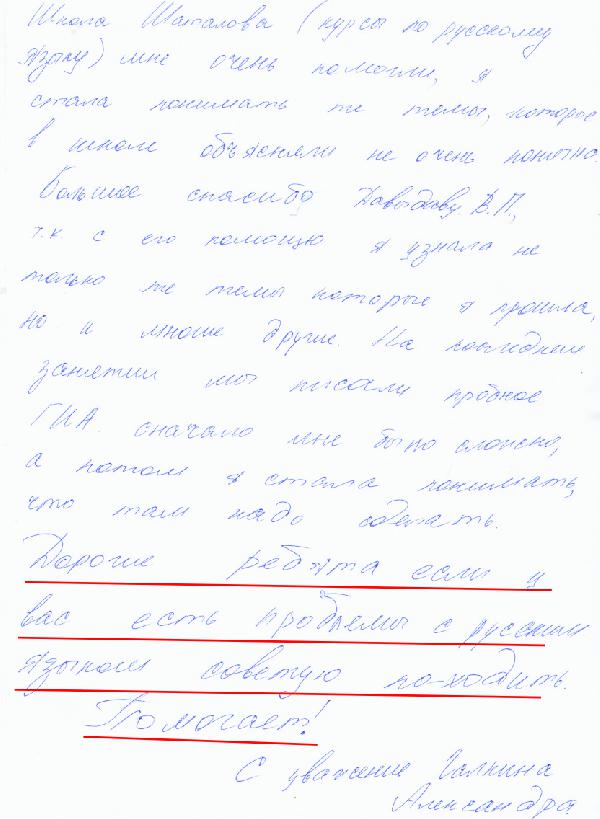 Школа Шаталова (курсы по русскому
языку) мне очень помогли, я
стала понимать те темы, которые
в школе объясняли не очень понятно.
Большое спасибо Давыдову В.П.,
т.к. с его помощью я узнала не
только те темы которые я прошла,
но и многие другие. На последнем
занятии мы писали пробное
ГИА. сначало мне было сложно,
а потом я стала понимать,
что там надо сделать.
Дорогие ребята если у
вас есть проблемы с русским
языком советую по-ходить.
Помогает!
С уважение Галкина
Александра